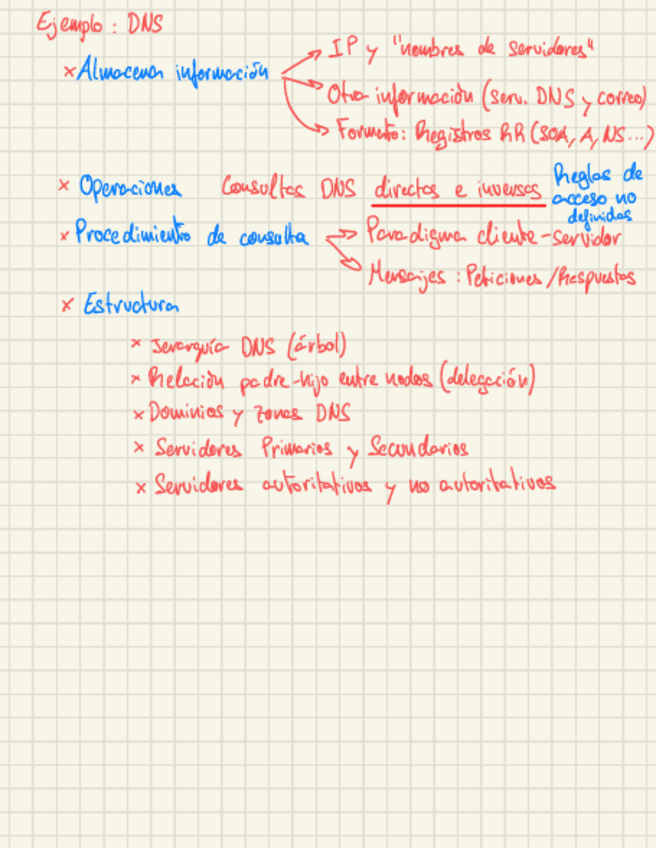 Ejemplo : DNS
× Almacenar información
IP y "nombres de servidores"
Otra información (serv. DNS y correo)
Formato: Registros RR (SOA, A, NS...)
× Operaciones Consultas DNS directas e inversas
Reglas de
acceso no
definidas
× Procedimiento de consulta
Paradigma cliente-servidor
Mensajes : Peticiones/Respuestas
× Estructura
× Jerarquía DNS (árbol)
× Relación padre-hijo entre nodos (delegación)
× Dominios y zonas DNS
× Servidores Primarios y Secundarios
× Servidores autoritativos y no autoritativos